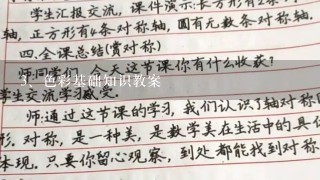 学生汇报交流，课件演示：长方形有2条
轴，正方形有4条对称轴，圆有无数条对称轴.
四.全课总结(赏对称)
师：同学们，今天这节课你有什么收获？
5、色彩基础知识教案
学生交流学习感受.
师：通过这节课的学习，我们认识了轴对称图
形.对称，是一种美，是数学美在生活中的具体
体现.只要你留心观察，到处都能找到对称